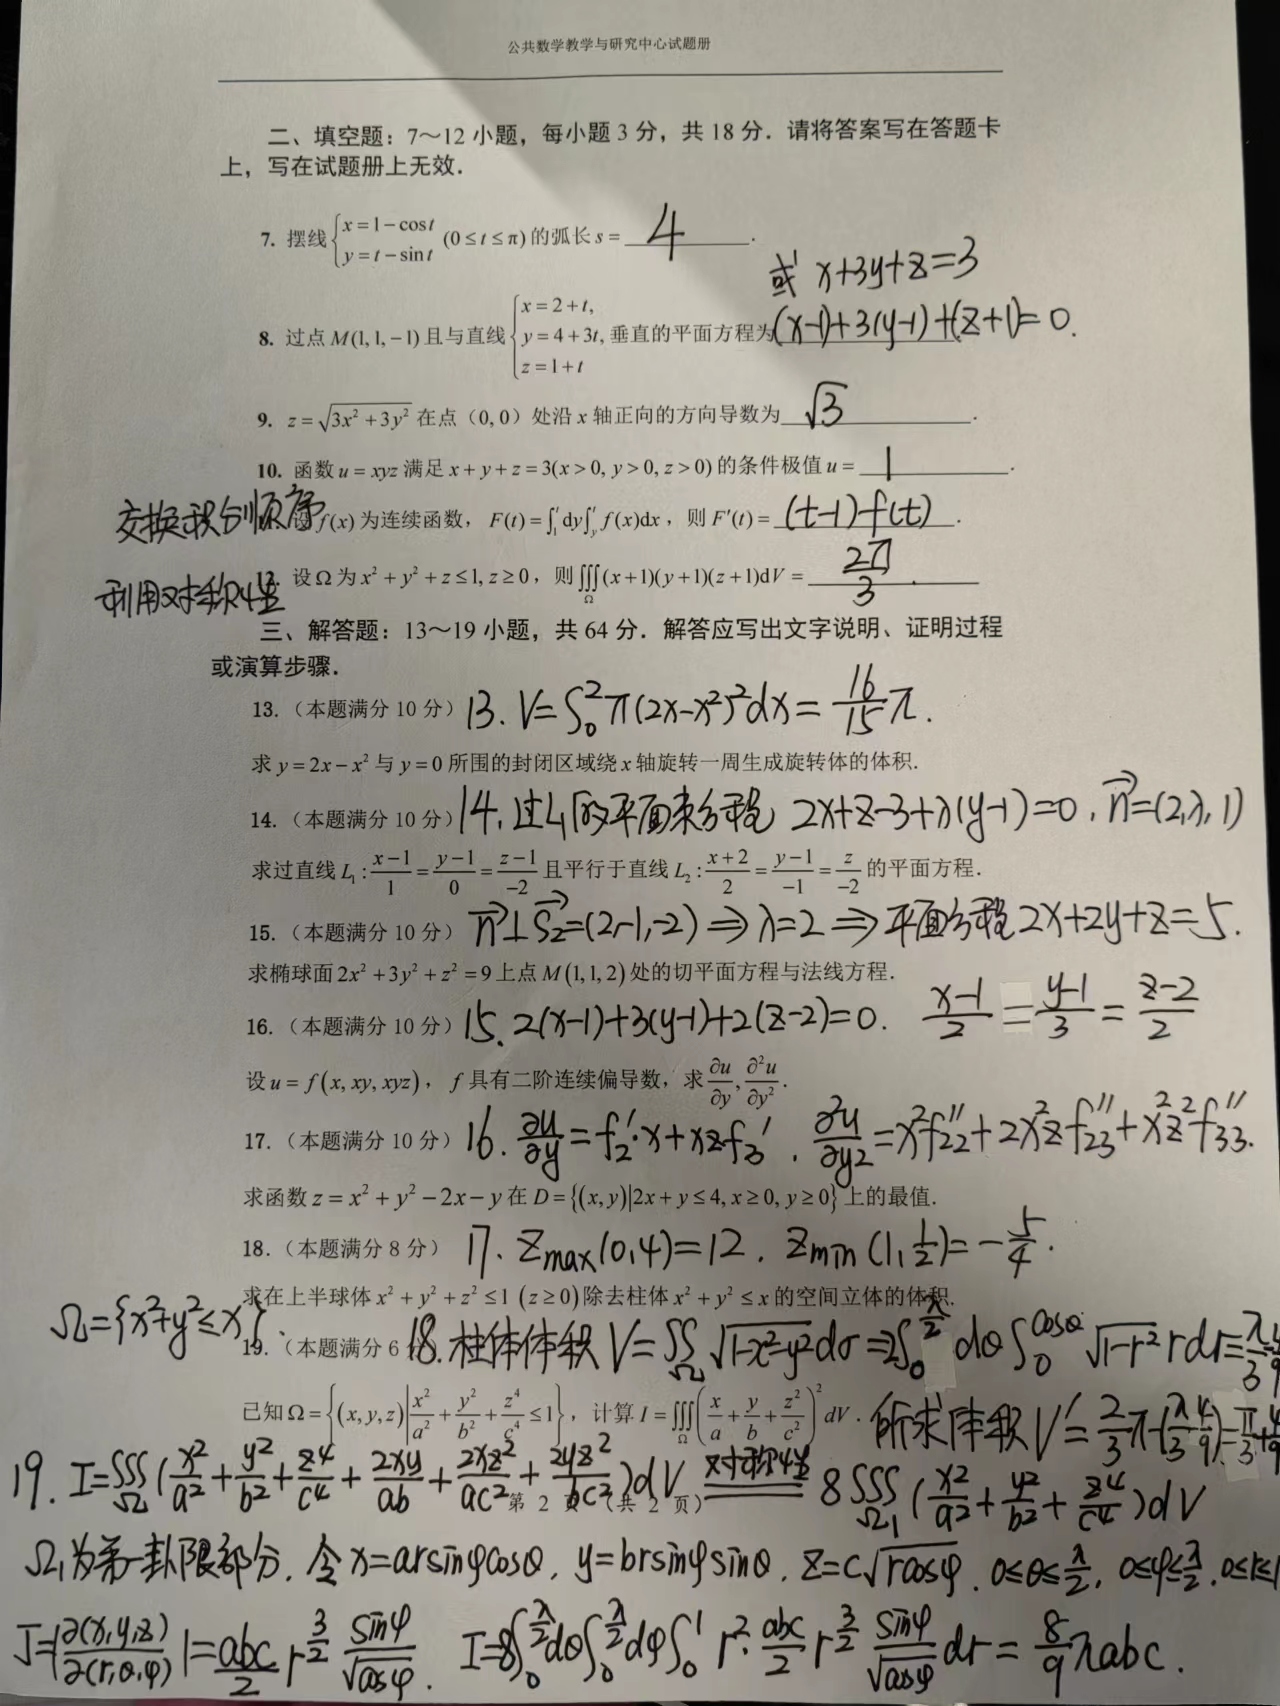 公共数学教学与研究中心试题册
二、填空题：7～12 小题，每小题 3 分，共 18 分．请将答案写在答题卡
上，写在试题册上无效．
7. 摆线 {x=1−cost, y=t−sint (0≤t≤π) 的弧长 s= 4 .
或 x+3y+z=3
8. 过点 M(1,1,−1) 且与直线 {x=2+t, y=4+3t, z=1+t 垂直的平面方程为 (x-1)+3(y-1)+(z+1)=0.
9. z=√(3x²+3y²) 在点（0,0）处沿 x 轴正向的方向导数为 √3 .
10. 函数 u=xyz 满足 x+y+z=3(x>0, y>0, z>0) 的条件极值 u= 1 .
交换积分顺序 设 f(x) 为连续函数，F(t)=∫₁ᵗdy∫ᵧᵗ f(x)dx，则 F′(t)= (t-1)f(t) .
利用对称性 12. 设 Ω 为 x²+y²+z≤1, z≥0，则 ∭_Ω (x+1)(y+1)(z+1)dV= 2π/3 .
三、解答题：13～19 小题，共 64 分．解答应写出文字说明、证明过程
或演算步骤．
13.（本题满分 10 分） 13. V=∫₀² π(2x-x²)²dx = 16/15 π.
求 y=2x−x² 与 y=0 所围的封闭区域绕 x 轴旋转一周生成旋转体的体积.
14.（本题满分 10 分） 14. 过L₁的平面束方程 2x+z-3+λ(y-1)=0, n⃗=(2,λ,1)
求过直线 L₁: (x−1)/1=(y−1)/0=(z−1)/−2 且平行于直线 L₂: (x+2)/2=(y−1)/−1=z/−2 的平面方程.
15.（本题满分 10 分） n⃗⊥S₂⃗=(2,-1,-2) ⇒ λ=2 ⇒ 平面方程 2x+2y+z=5.
求椭球面 2x²+3y²+z²=9 上点 M(1,1,2) 处的切平面方程与法线方程.
16.（本题满分 10 分） 15. 2(x-1)+3(y-1)+2(z-2)=0. (x-1)/2=(y-1)/3=(z-2)/2
设 u=f(x, xy, xyz)，f 具有二阶连续偏导数，求 ∂u/∂y, ∂²u/∂y².
17.（本题满分 10 分） 16. ∂u/∂y=f₂′·x+xzf₃′, ∂²u/∂y²=x²f₂₂″+2x²zf₂₃″+x²z²f₃₃″.
求函数 z=x²+y²−2x−y 在 D={(x,y)|2x+y≤4, x≥0, y≥0} 上的最值.
18.（本题满分 8 分） 17. Zmax(0,4)=12. Zmin(1,1/2)=-5/4.
求在上半球体 x²+y²+z²≤1 (z≥0) 除去柱体 x²+y²≤x 的空间立体的体积.
Ω={x²+y²≤x}.
19.（本题满分 6 18. 柱体体积 V=∬_Ω √(1-x²-y²)dσ=2∫₀^(π/2) dθ∫₀^(cosθ) √(1-r²) r dr=π/3-4/9
已知 Ω={(x,y,z)|x²/a²+y²/b²+z⁴/c⁴≤1}，计算 I=∭_Ω (x/a+y/b+z²/c²)² dV. 所求体积 V′=2/3π-(π/3-4/9)=π/3+4/9
19. I=∭_Ω (x²/a²+y²/b²+z⁴/c⁴+2xy/ab+2xz²/ac²+2yz²/bc²)dV 对称性 8∭_Ω₁ (x²/a²+y²/b²+z⁴/c⁴)dV
第 2 页（共 2 页）
Ω₁为第一卦限部分, 令 x=arsinφcosθ, y=brsinφsinθ, z=c√(rcosφ). 0≤θ≤π/2, 0≤φ≤π/2, 0≤r≤1
J=|∂(x,y,z)/∂(r,θ,φ)|=abc/2 r^(3/2) sinφ/√cosφ. I=8∫₀^(π/2)dθ∫₀^(π/2)dφ∫₀¹ r²·abc/2 r^(3/2) sinφ/√cosφ dr=8/9 πabc.